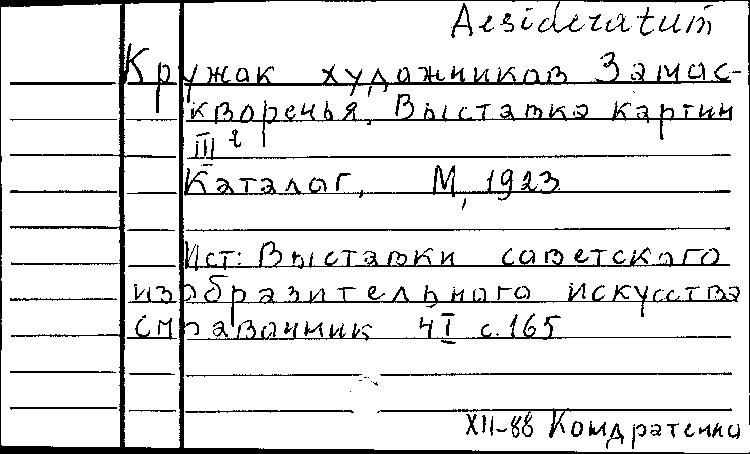 Desideratum
Кружок художников Замос-
кворечья. Выставка картин
III я
Каталог, М, 1923
Ист: Выставки советского
изобразительного искусства
справочник ч I с. 165
XII-88 Кондратенко